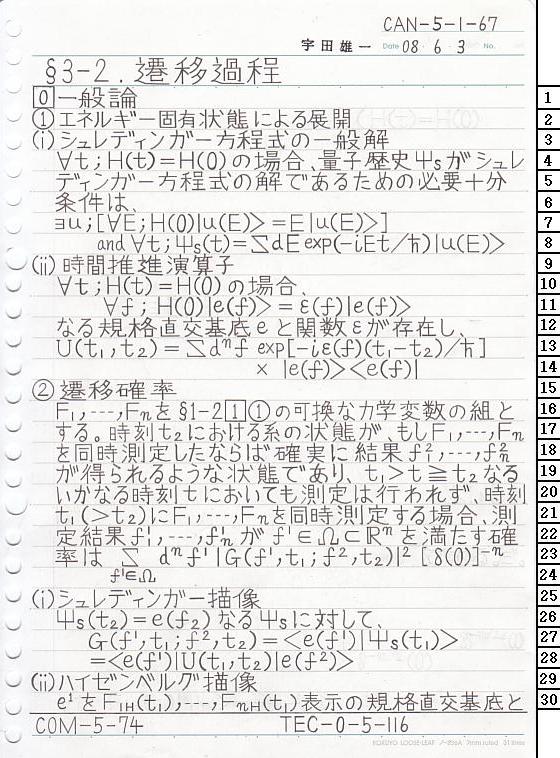 CAN-5-1-67
宇田雄一 Date 08・6・3 No.
§3-2.遷移過程
0 一般論
①エネルギー固有状態による展開
(i)シュレディンガー方程式の一般解
∀t;H(t)=H(0)の場合、量子歴史Ψsがシュレ
ディンガー方程式の解であるための必要十分
条件は、
∃u;[∀E;H(0)|u(E)>=E|u(E)>]
and ∀t;Ψs(t)=∑dE exp(-iEt/ħ)|u(E)>
(ii)時間推進演算子
∀t;H(t)=H(0)の場合、
∀f;H(0)|e(f)>=ε(f)|e(f)>
なる規格直交基底eと関数εが存在し、
U(t₁,t₂)=∑dⁿf exp[-iε(f)(t₁-t₂)/ħ]
×|e(f)><e(f)|
②遷移確率
F₁,---,Fnを§1-2 1 ①の可換な力学変数の組と
する。時刻t₂における系の状態が、もしF₁,---,Fn
を同時測定したならば確実に結果f²₁,---,f²n
が得られるような状態であり、t₁>t≧t₂なる
いかなる時刻tにおいても測定は行われず、時刻
t₁(>t₂)にF₁,---,Fnを同時測定する場合、測
定結果f¹₁,---,f¹nがf¹∈Ω⊂ℝⁿを満たす確
率は ∑ dⁿf¹|G(f¹,t₁;f²,t₂)|² [δ(0)]⁻ⁿ
f¹∈Ω
(i)シュレディンガー描像
Ψs(t₂)=e(f₂)なるΨsに対して、
G(f¹,t₁;f²,t₂)=<e(f¹)|Ψs(t₁)>
=<e(f¹)|U(t₁,t₂)|e(f²)>
(ii)ハイゼンベルグ描像
e¹をF₁H(t₁),---,FnH(t₁)表示の規格直交基底と
COM-5-74 TEC-0-5-116
KOKUYO LOOSE-LEAF ノ-836A 7mm ruled 31 lines
1
2
3
4
5
6
7
8
9
10
11
12
13
14
15
16
17
18
19
20
21
22
23
24
25
26
27
28
29
30